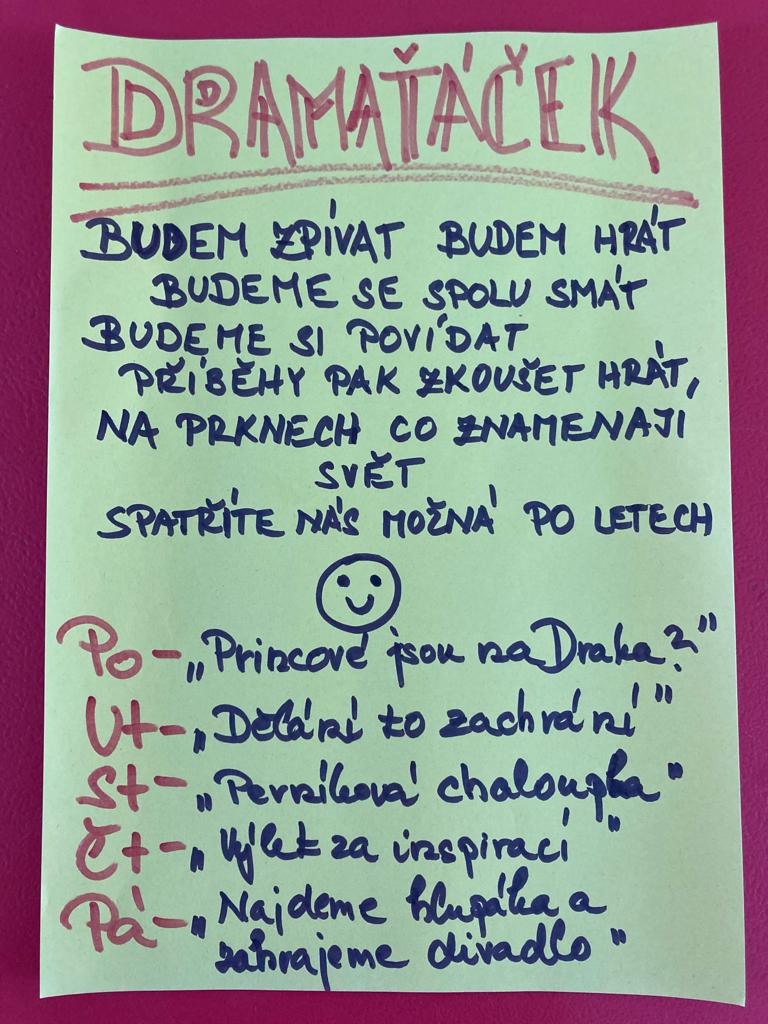 DRAMAŤÁČEK
BUDEM ZPÍVAT BUDEM HRÁT
BUDEME SE SPOLU SMÁT
BUDEME SI POVÍDAT
PŘÍBĚHY PAK ZKOUŠET HRÁT,
NA PRKNECH CO ZNAMENAJI
SVĚT
SPATŘÍTE NÁS MOŽNÁ PO LETECH
Po - „Princové jsou na Draka?"
Út - „Dělání to zachrání"
St - „Perníková chaloupka"
Čt - „Výlet za inspirací"
Pá - „Najdeme hlupáka a
zahrajeme divadlo"